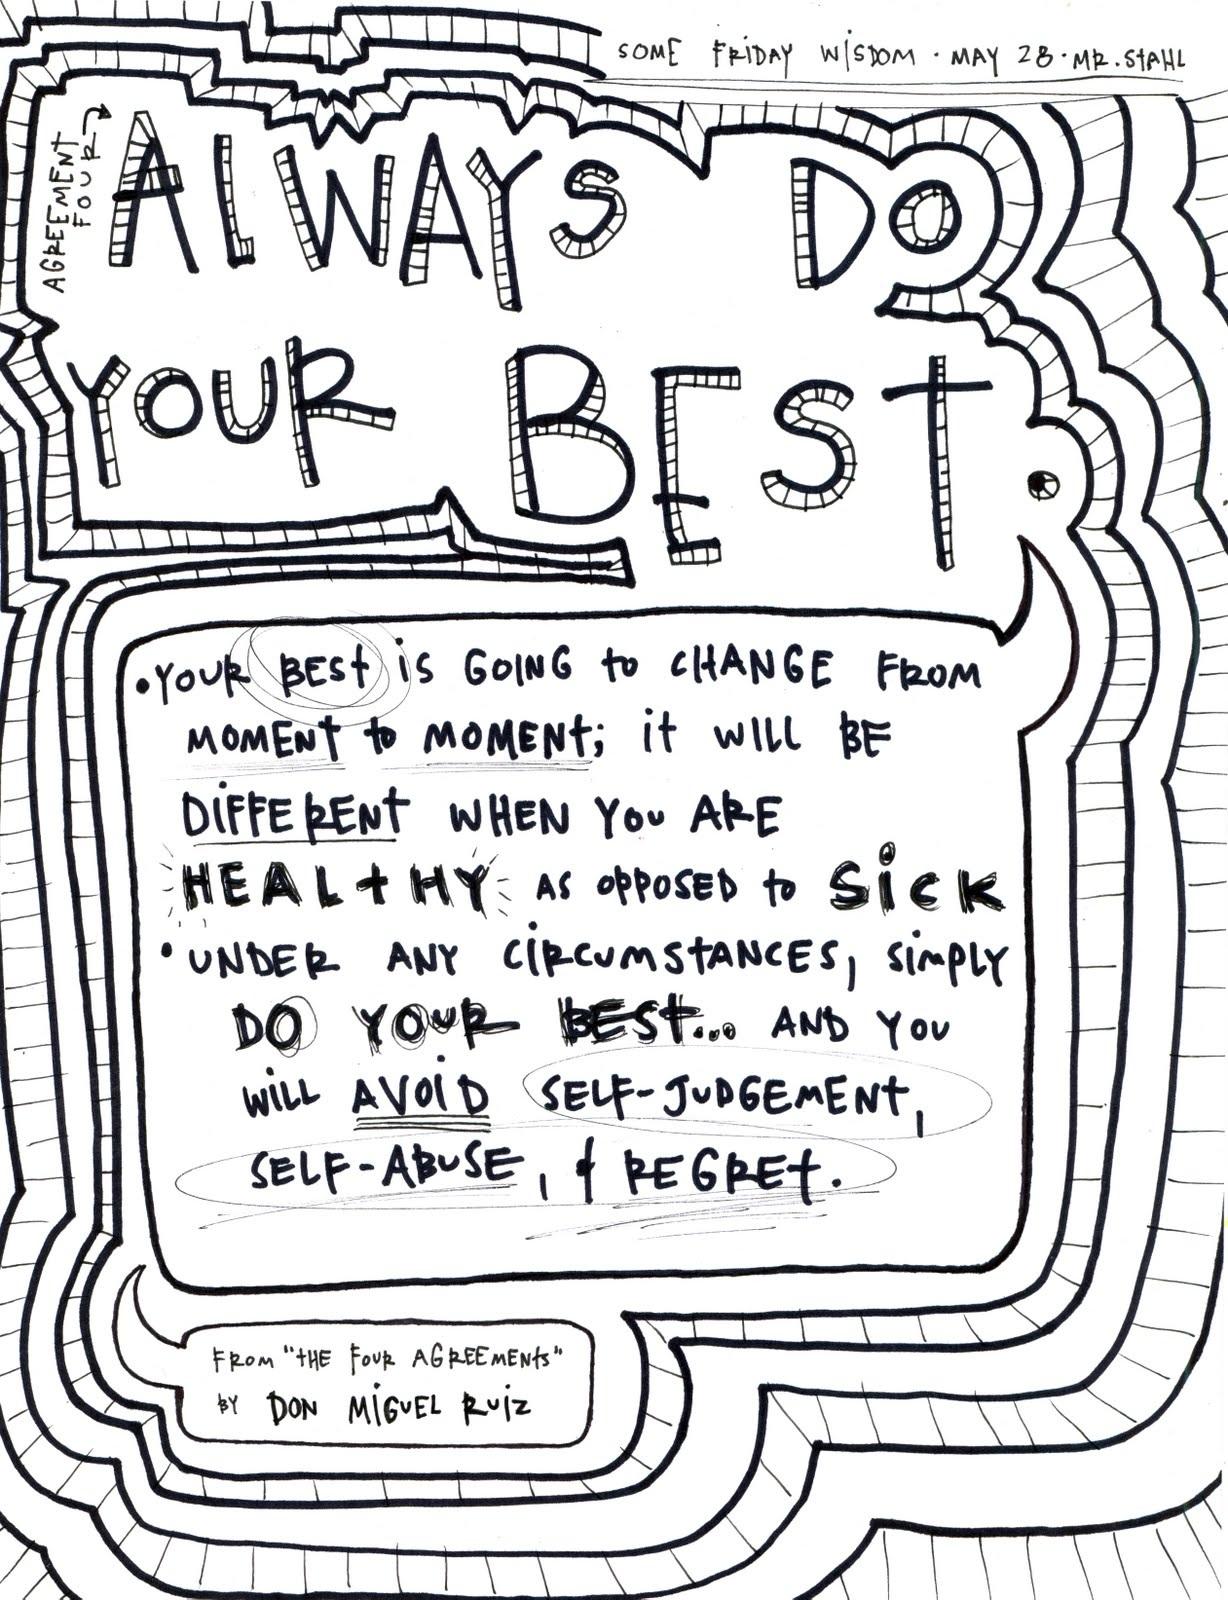 SOME FRIDAY WISDOM · MAY 28 · MR. STAHL
AGREEMENT
FOUR
ALWAYS DO
YOUR BEST.
• YOUR BEST iS GOING to CHANGE FROM
MOMENT to MOMENT; it WILL BE
DIFFERENT WHEN YOU ARE
HEALTHY AS OPPOSED to SICK
• UNDER ANY CIRCUMSTANCES, SIMPLY
DO YOUR BEST... AND YOU
WILL AVOID SELF-JUDGEMENT,
SELF-ABUSE, & REGRET.
FROM "THE FOUR AGREEMENTS"
BY DON MIGUEL RUIZ